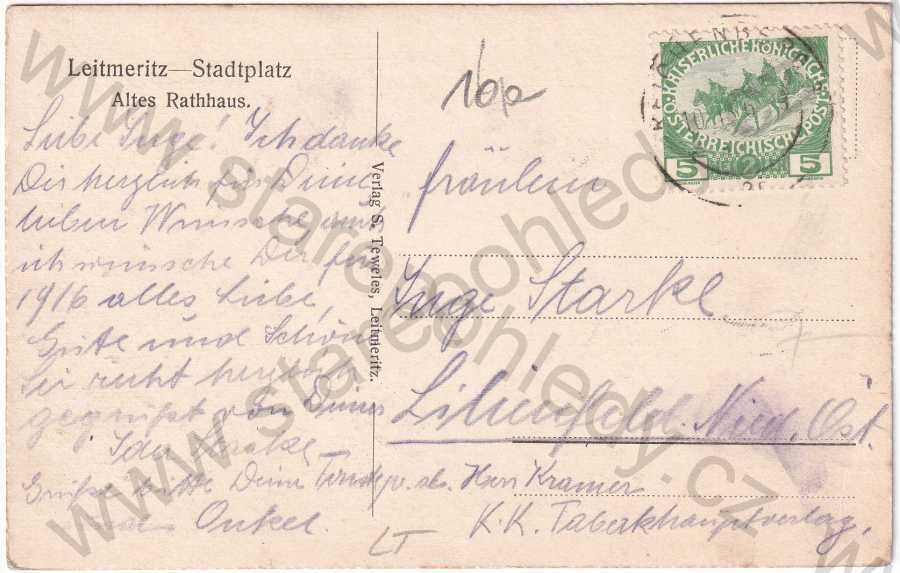 Leitmeritz—Stadtplatz
Altes Rathhaus.
Liebe Inge! Ich danke
Dir herzlich für Deine
lieben Wünsche und
ich wünsche Dir für
1916 alles Liebe,
Gute und Schöne
Sei recht herzlich
gegrüßt von Deiner
Ida Starke
Grüße bitte Deine
Onkel.
LT
Verlag S. Teweles, Leitmeritz.
KAISERLICHE KÖNIGLICHE
ÖSTERREICHISCHE POST
5 2 5
Fräulein
Inge Starke
Lilienfeld Nied. Öst.
Herr Kramer
K.K. Tabakhauptverlag,
www.starepohledy.cz